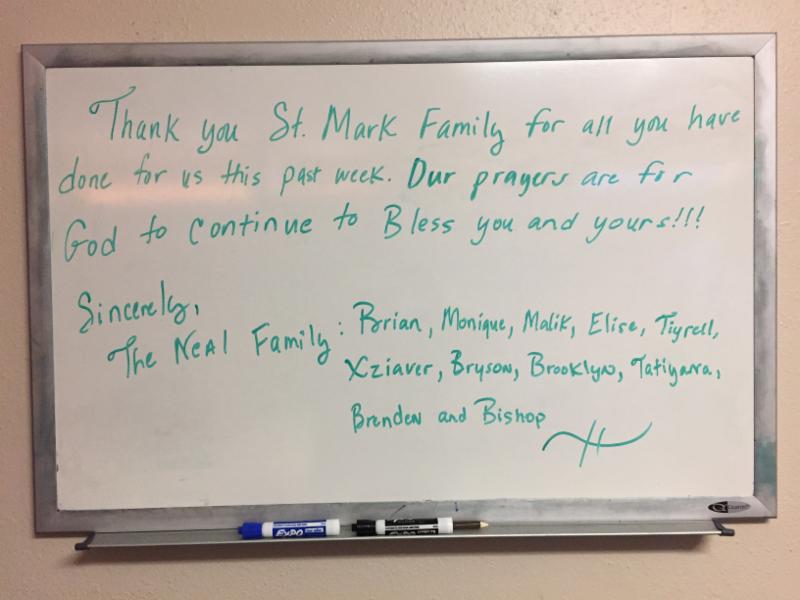 Thank you St. Mark Family for all you have
done for us this past week. Our prayers are for
God to continue to Bless you and yours!!!
Sincerely,
The Neal Family: Brian, Monique, Malik, Elise, Tiyrell,
Xziaver, Bryson, Brooklyn, Tatiyana,
Brenden and Bishop
EXPO